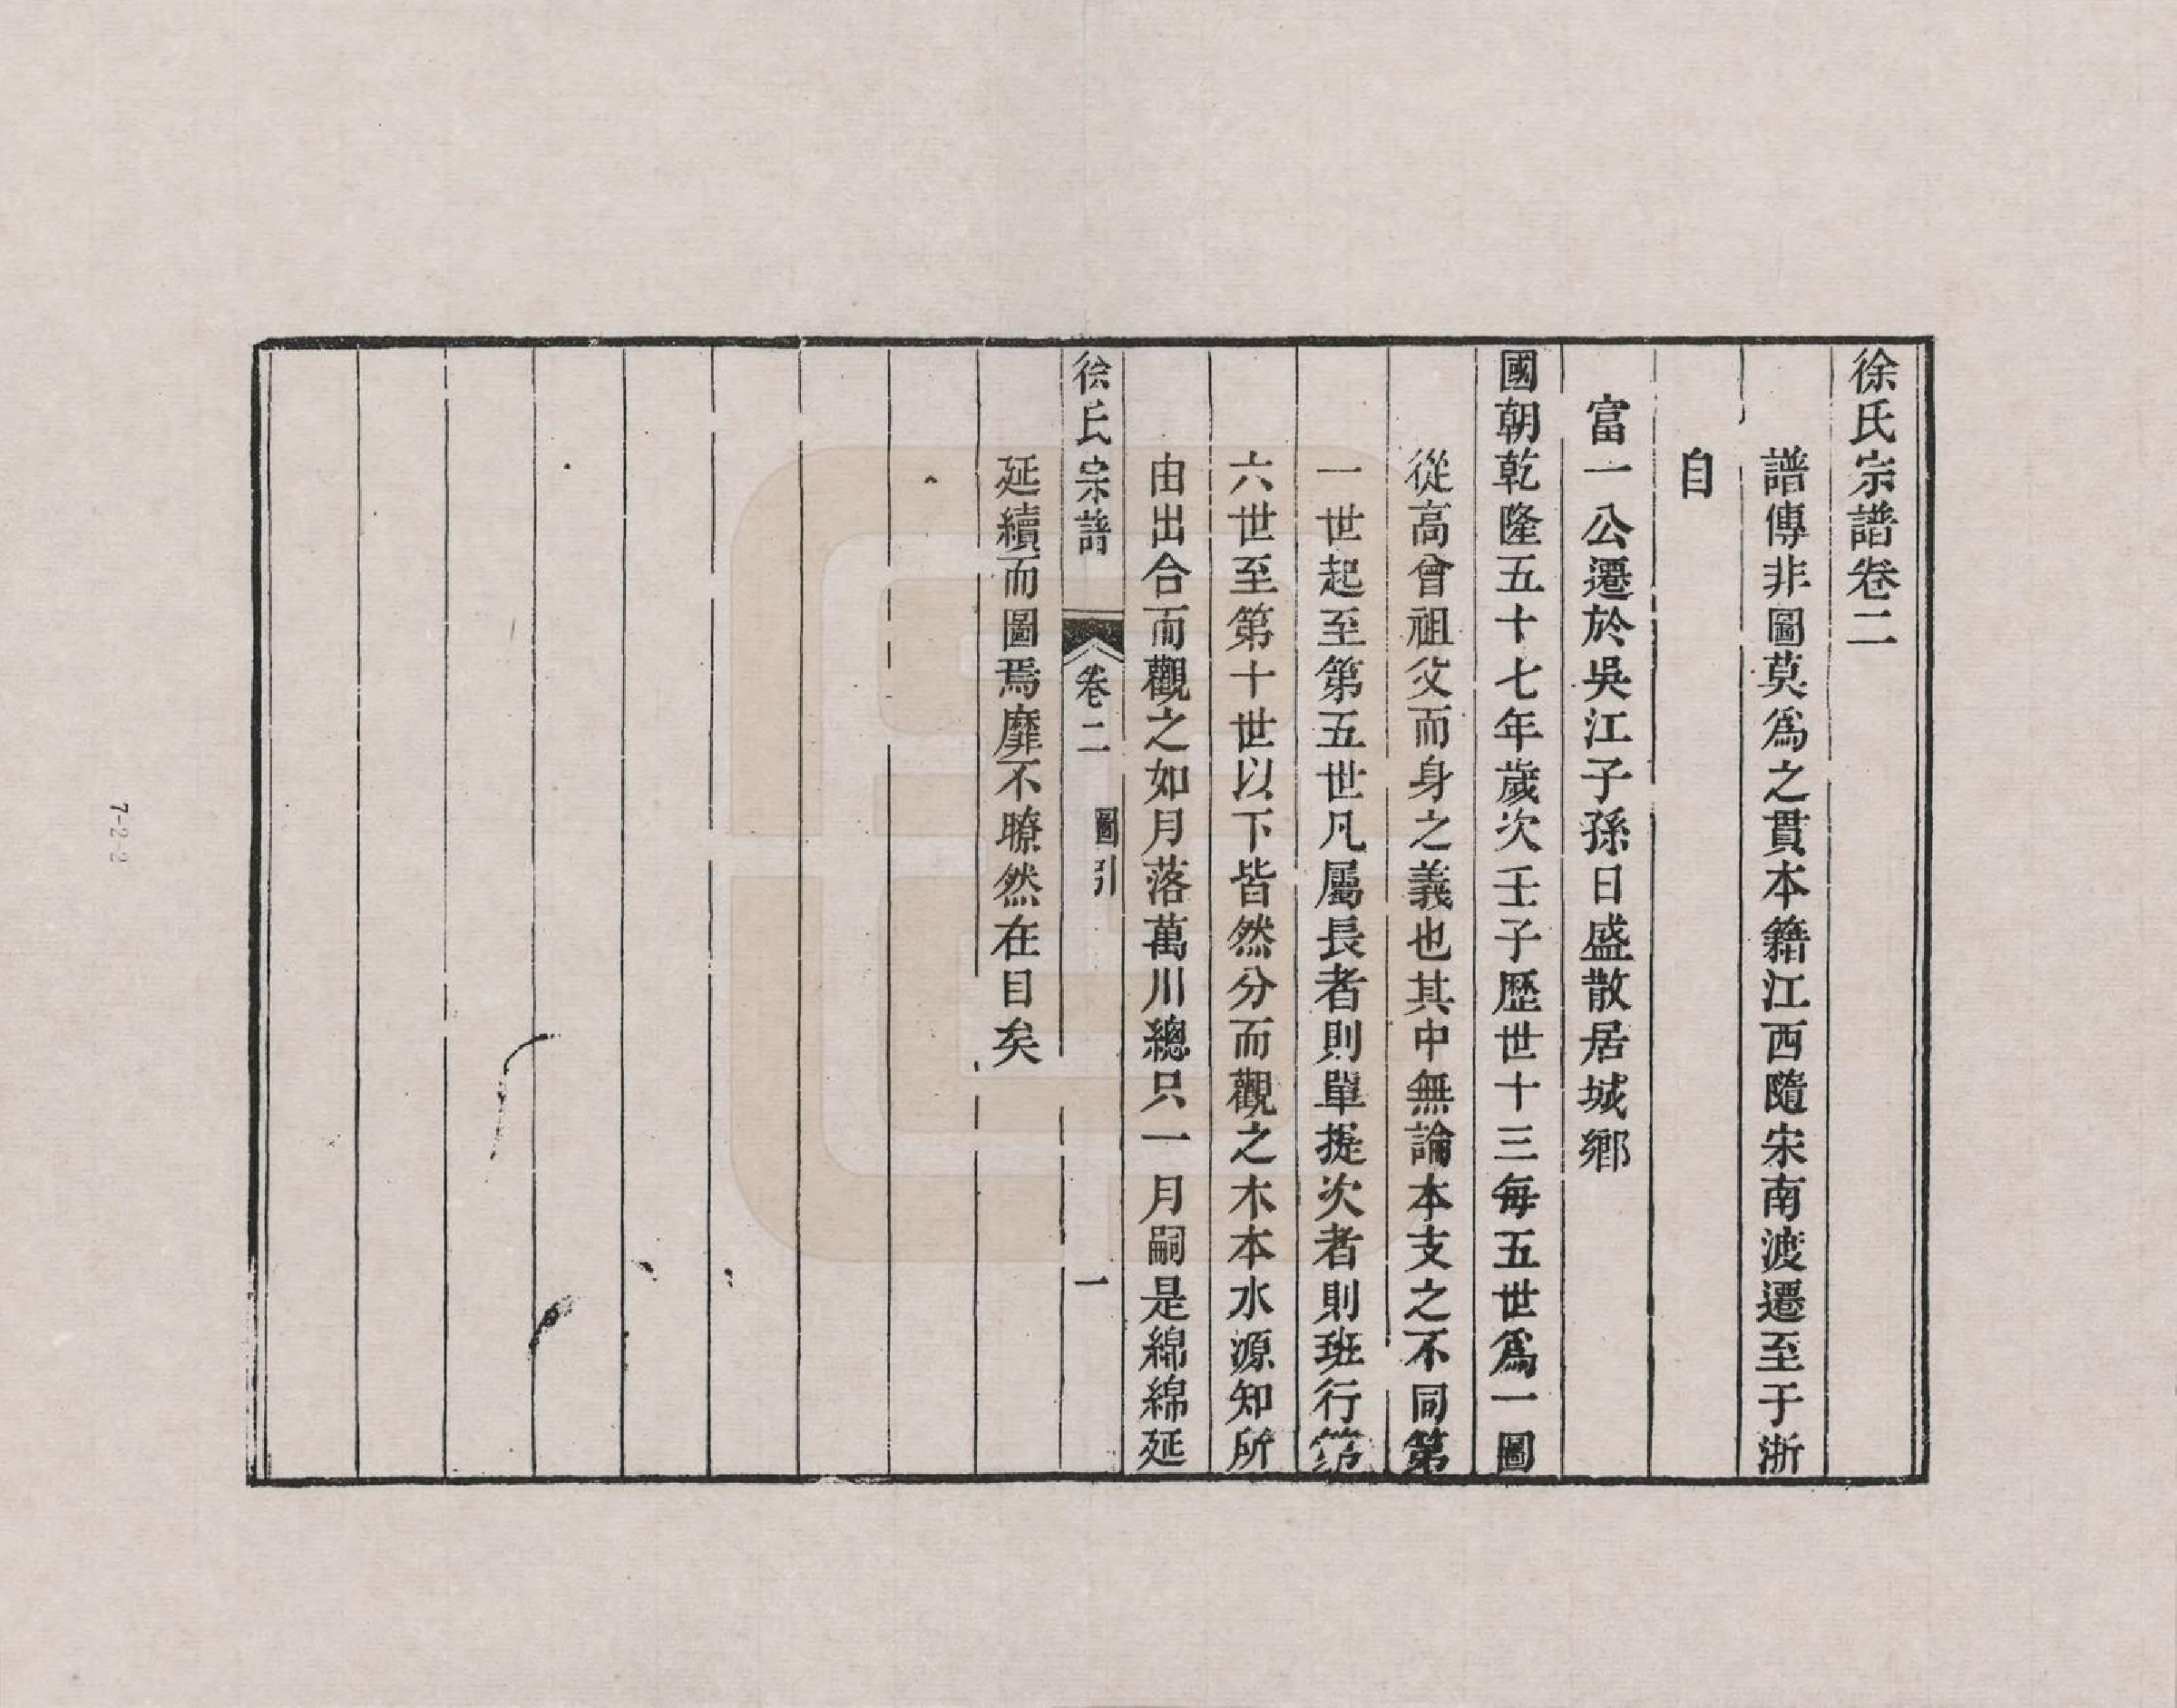 徐氏宗譜卷二
譜傳非圖莫爲之貫本籍江西隨宋南渡遷至于浙
自
富一公遷於吳江子孫日盛散居城鄉
國朝乾隆五十七年歲次壬子歷世十三每五世爲一圖
從高曾祖父而身之義也其中無論本支之不同第
一世起至第五世凡屬長者則單提次者則班行第
六世至第十世以下皆然分而觀之木本水源知所
由出合而觀之如月落萬川總只一月嗣是綿綿延
徐氏宗譜 卷二 圖引 一
延續而圖焉靡不暸然在目矣
7-2-2